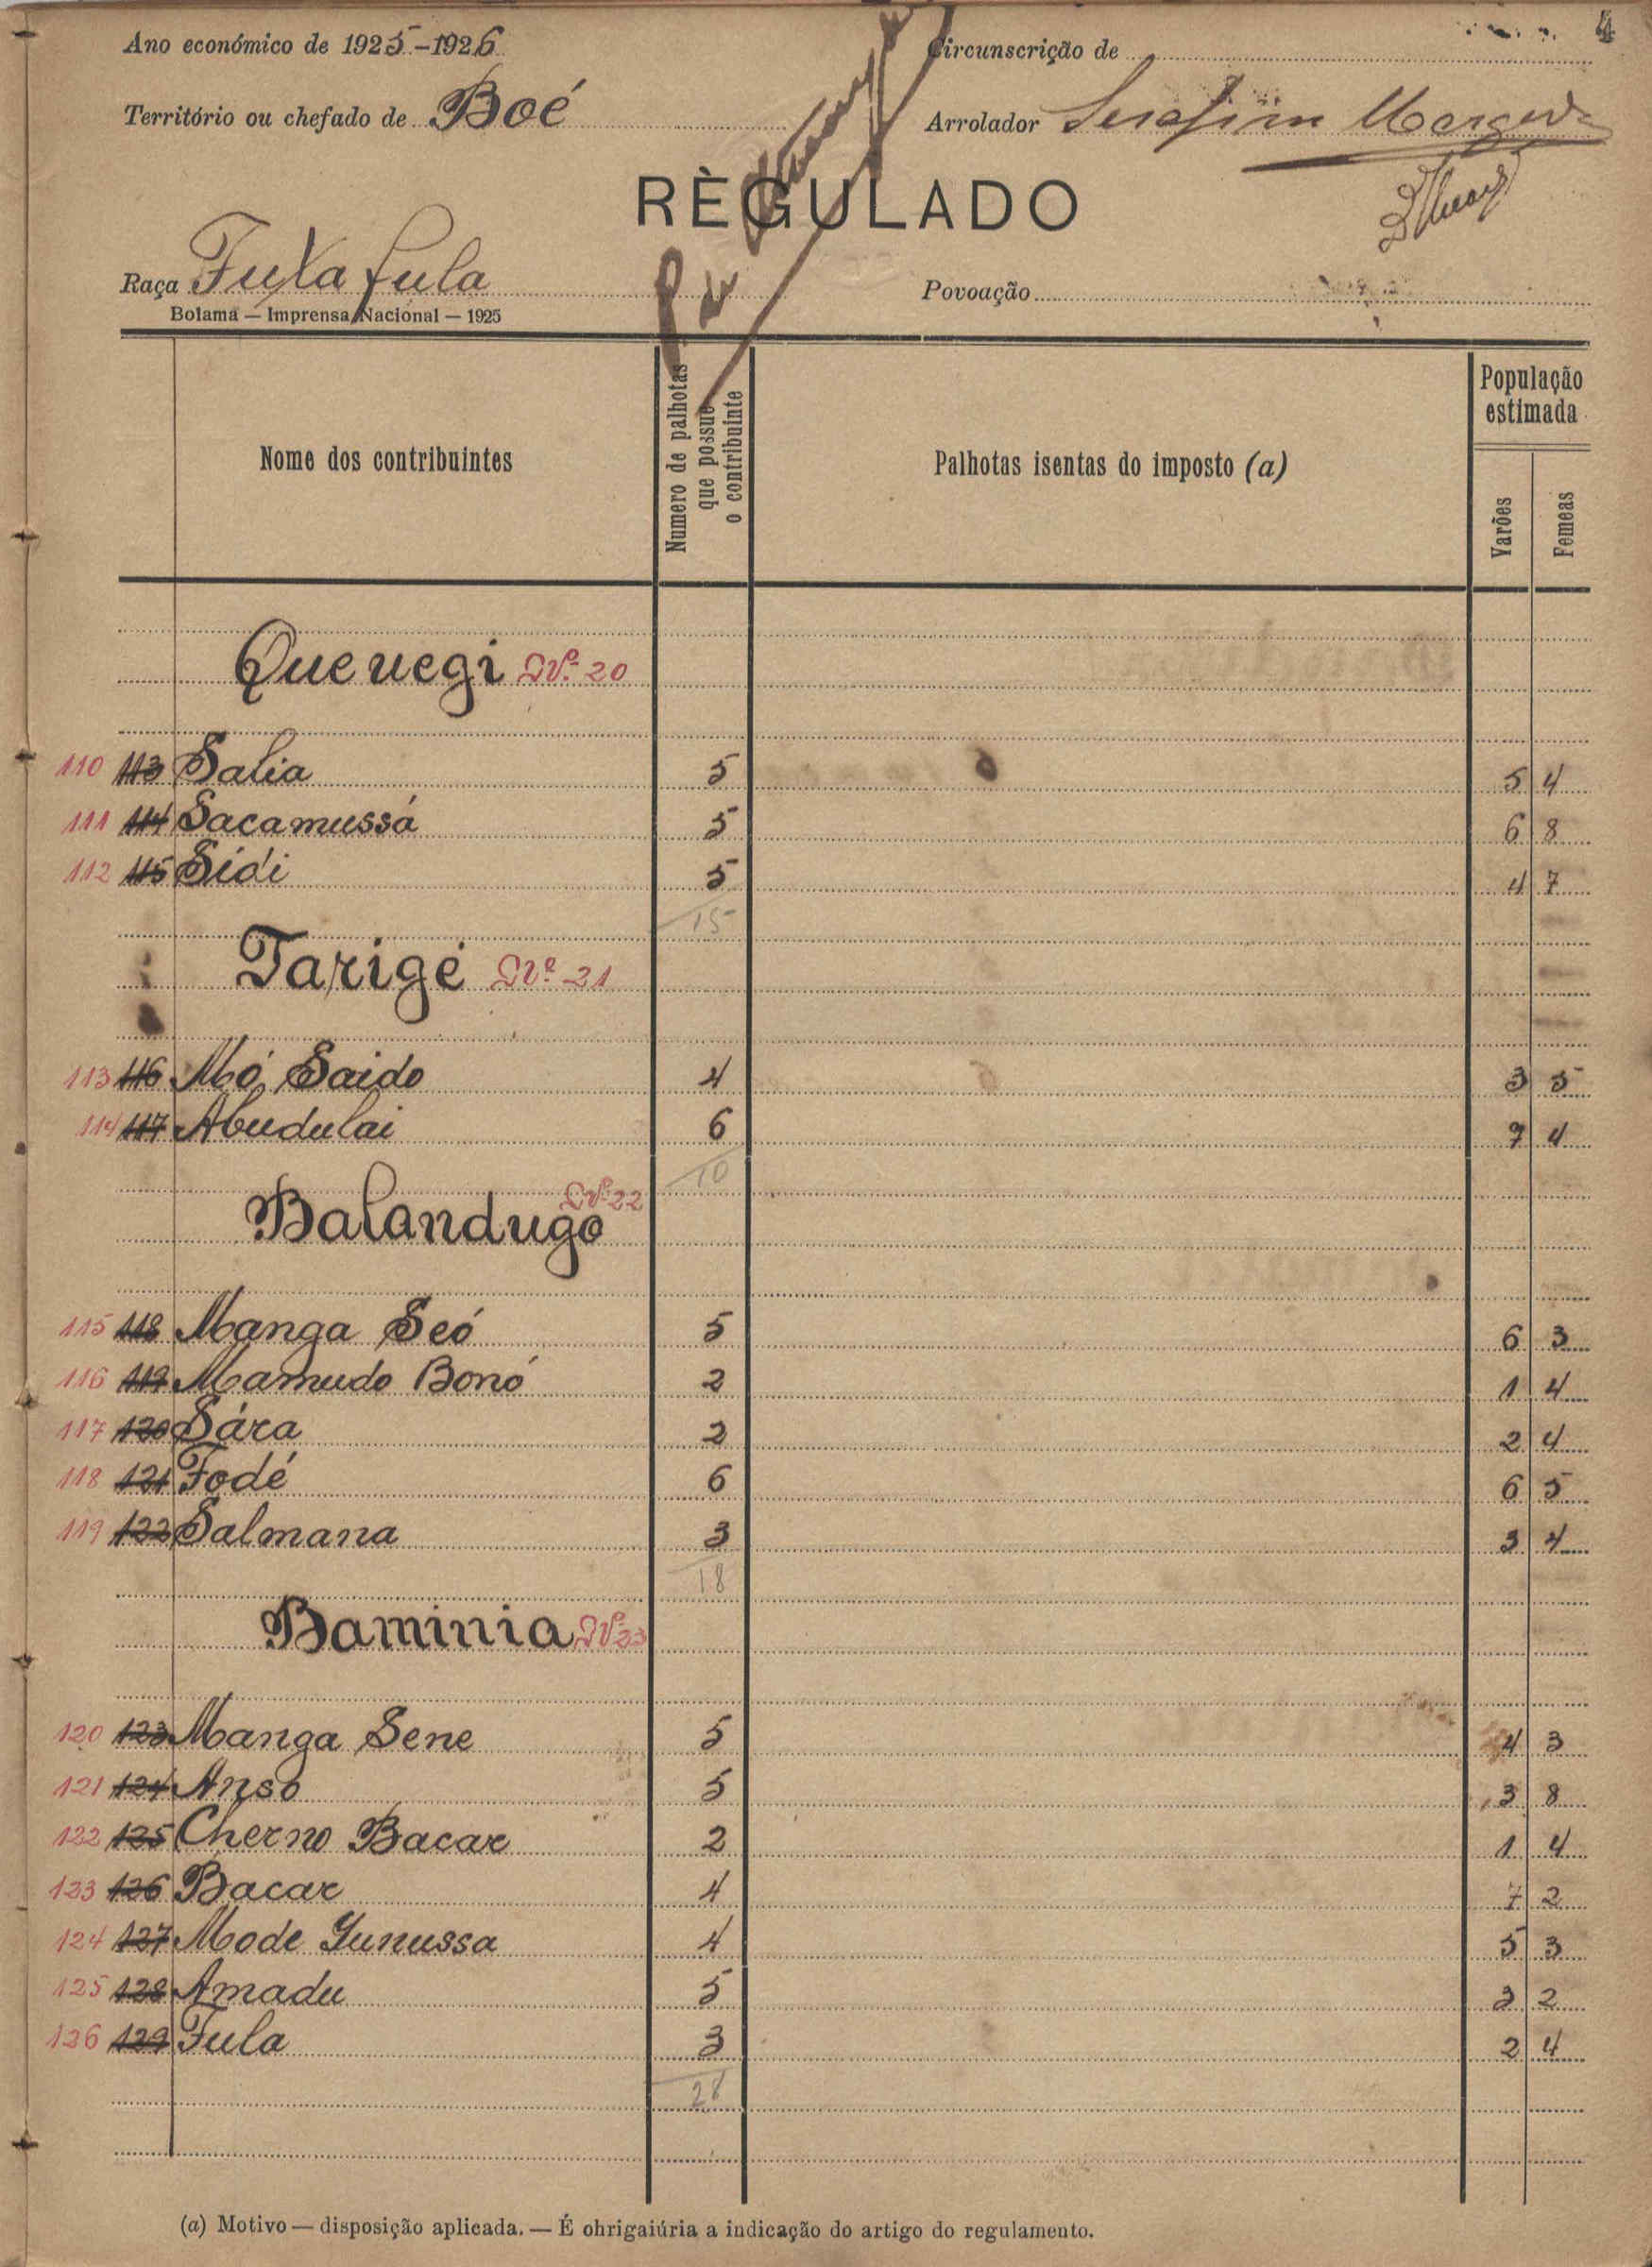 4
Ano económico de 1925-1926 Circunscrição de
Território ou chefado de Boé Arrolador Serafim
RÈGULADO
Raça Futa fula Povoação
Bolama — Imprensa Nacional — 1925
Nome dos contribuintes Numero de palhotas que possue o contribuinte Palhotas isentas do imposto (a) População estimada Varões Femeas
Queuegi Nº 20
110 113 Salia 5 5 4
111 114 Sacamussá 5 6 8
112 115 Sidi 5 4 7
15
Tarigé Nº 21
113 116 Mó Saido 4 3 5
114 117 Abudulai 6 7 4
10
Balandugo Nº 22
115 118 Manga Seó 5 6 3
116 119 Mamudo Bonó 2 1 4
117 120 Sára 2 2 4
118 121 Fodé 6 6 5
119 122 Salmana 3 3 4
18
Baminia Nº 23
120 123 Manga Sene 5 4 3
121 124 Anso 5 3 8
122 125 Cherno Bacar 2 1 4
123 126 Bacar 4 7 2
124 127 Mode Yunussa 4 5 3
125 128 Amadu 5 3 2
126 129 Fula 3 2 4
28
(a) Motivo — disposição aplicada. — É ohrigaiúria a indicação do artigo do regulamento.